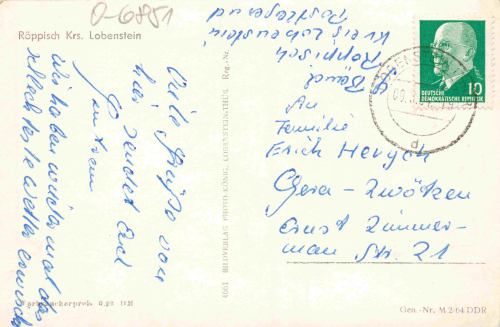 O-6851
Röppisch Krs. Lobenstein
Viele Grüße von
hier sendet Euch
Wir haben wieder mal das
schlechteste Wetter erwischt
Röppisch
Kreis Lobenstein
An
Familie
Erich Hergeh
Gera - Zwötzen
Ernst Zimmer-
man Str. 21
DEUTSCHE
DEMOKRATISCHE REPUBLIK
10
4661 BILDVERLAG PHOTO-KÖNIG, LOBENSTEIN/THÜR. Reg.-Nr.
Verbraucherpreis 0,20 DM
Gen.-Nr. M 2/64 DDR